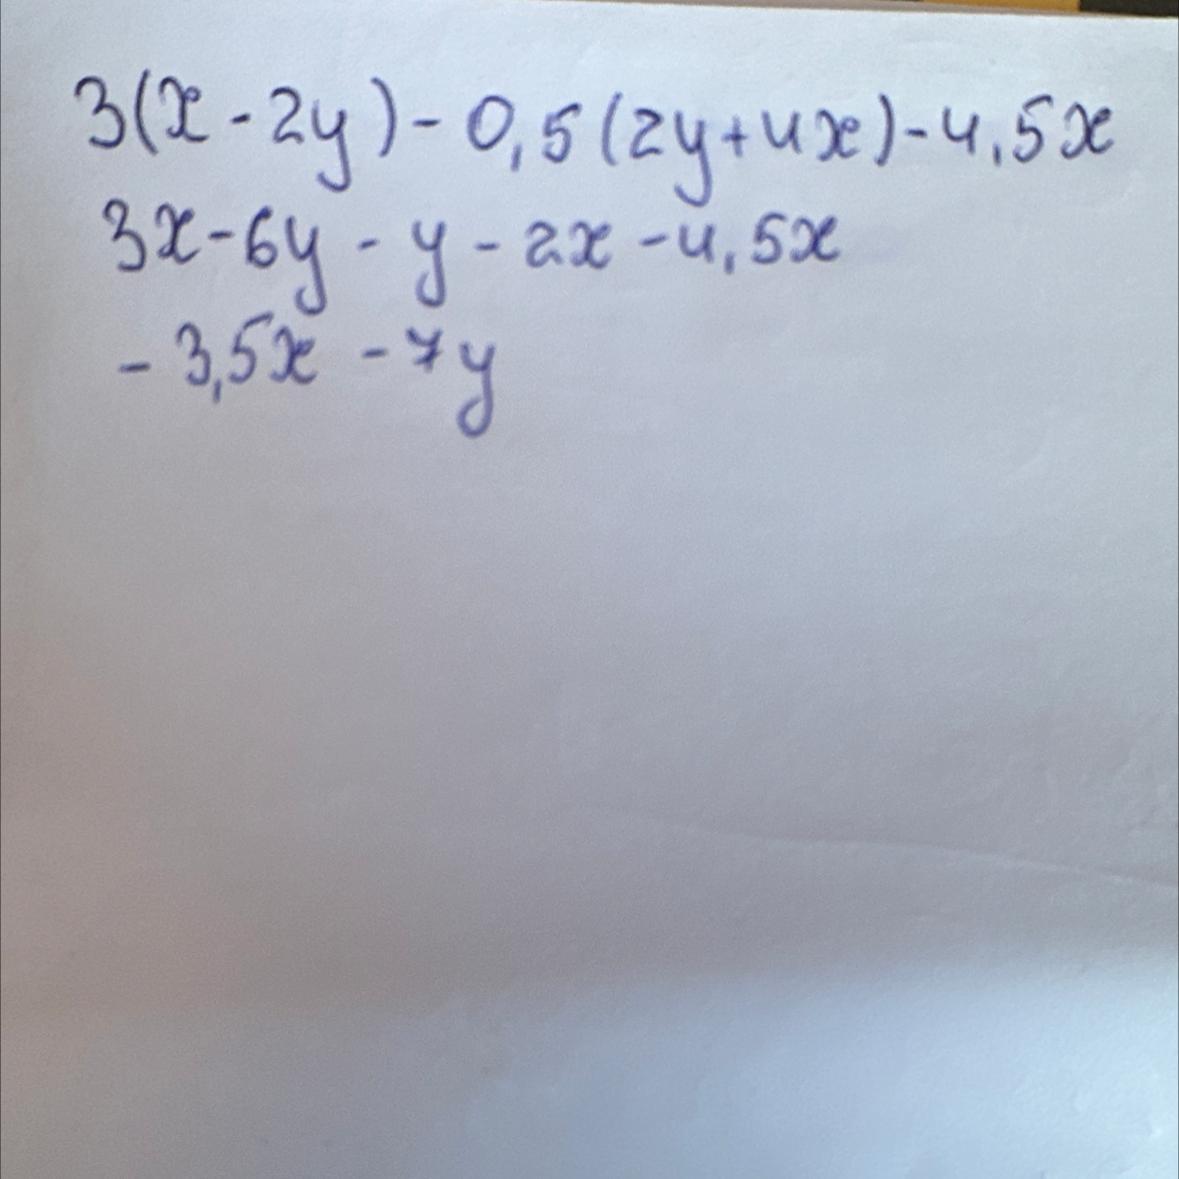 3(x - 2y) - 0,5(2y+4x) - 4,5x
3x - 6y - y - 2x - 4,5x
- 3,5x - 7y